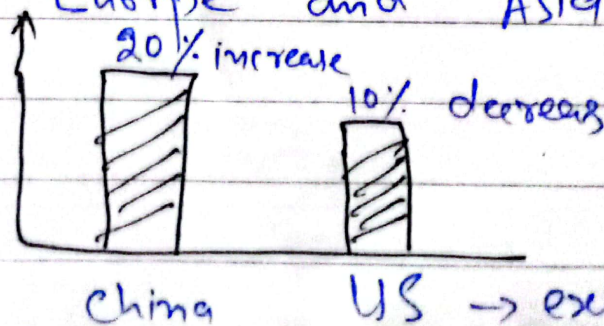 Europe and Asia
20% increase
10% decreas
China US →